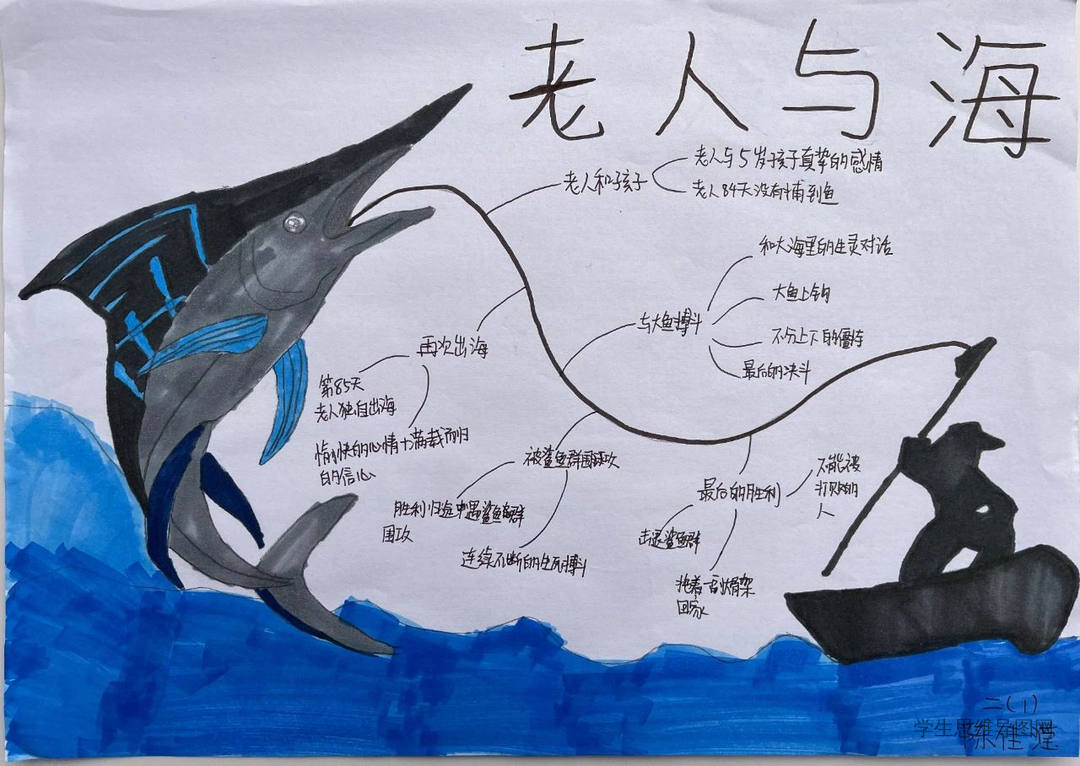 老人与海
老人和孩子
老人与5岁孩子真挚的感情
老人84天没有捕到鱼
再次出海
第85天
老人独自出海
愉快的心情+满载而归
的信心
与大鱼搏斗
和大海里的生灵对话
大鱼上钩
不分上下的僵持
最后的决斗
被鲨鱼群围攻
胜利归途中遇鲨鱼群
围攻
连续不断的生死搏斗
最后的胜利
不能被
打败的
人
击退鲨鱼群
拖着
骨架
回家
二(1)
学生思维导图网